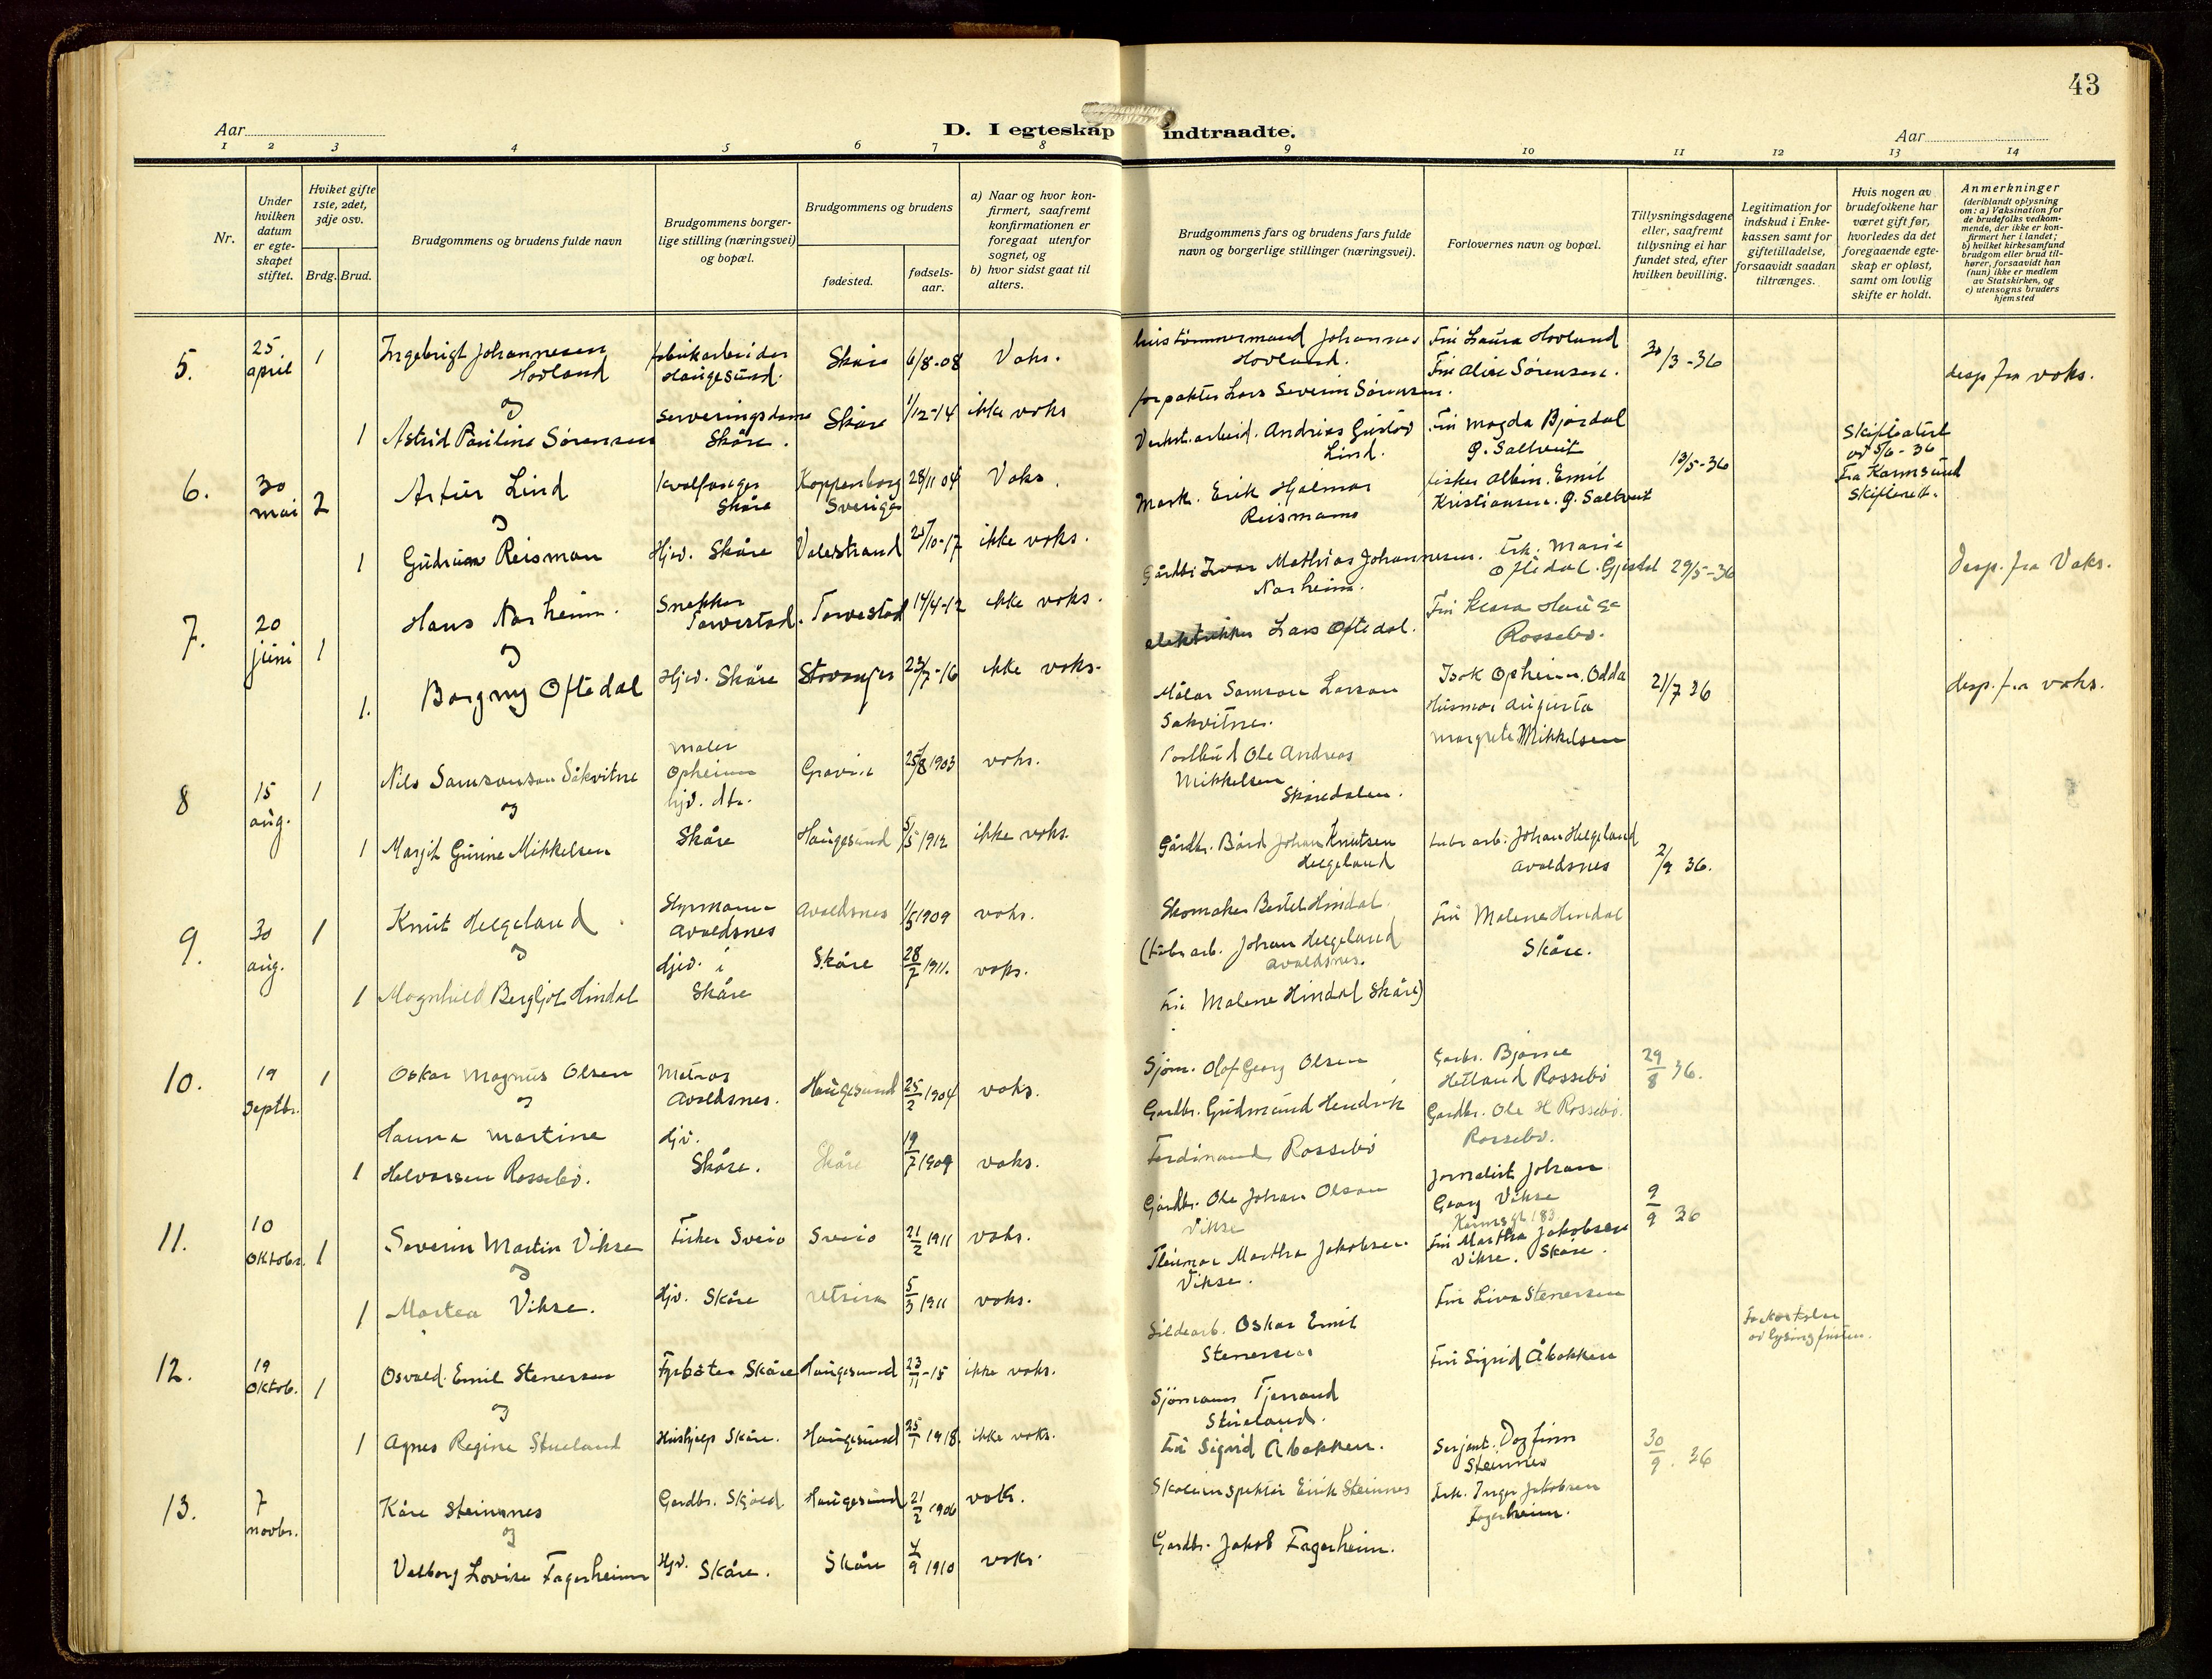 43
Aar
D. I egteskap indtraadte.
Aar
1 2 3 4 5 6 7 8 9 10 11 12 13 14
Nr.
Under hvilken datum er egte-skapet stiftet.
Hviket gifte 1ste, 2det, 3dje osv.
Brdg. Brud.
Brudgommens og brudens fulde navn
Brudgommens borger-lige stilling (næringsvei) og bopæl.
Brudgommens og brudens
fødested.
fødsels-aar.
a) Naar og hvor kon-firmert, saafremt konfirmationen er foregaat utenfor sognet, og
b) hvor sidst gaat til alters.
Brudgommens fars og brudens fars fulde navn og borgerlige stillinger (næringsvei).
Forlovernes navn og bopæl.
Tillysningsdagene eller, saafremt tillysning ei har fundet sted, efter hvilken bevilling.
Legitimation for indskud i Enke-kassen samt for giftetilladelse, forsaavidt saadan tiltrænges.
Hvis nogen av brudefolkene har været gift før, hvorledes da det foregaaende egte-skap er opløst, samt om lovlig skifte er holdt.
Anmerkninger (deriblandt oplysning om: a) Vaksination for de brudefolks vedkom-mende, der ikke er kon-firmert her i landet; b) hvilket kirkesamfund brudgom eller brud til-hører, forsaavidt han (hun) ikke er medlem av Statskirken, og c) utensogns bruders hjemsted
5. 25 april 1 Ingebrigt Johannesen Hovland fabrikarbeider Haugesund. Skåre 6/8-08 Vaks.
og
1 Astrid Pauline Sørensen Serveringsdame Skåre. Skåre 1/12-14 ikke voks
hustømmermand Johannes Hovland. Fru Laura Hovland 30/3-36 desp. fra voks.
forpakter Lars Severin Sørensen. Fru Alise Sørensen.
6. 30 mai 2 Artur Lind hvalfanger Skåre Kopparberg Sverige 28/11 04 Voks.
og
1 Gudrun Reisman Hjev. Skåre Valestrand 25/10-17 ikke voks.
Verkst.arbeid. Andreas Gustav Lind. Fru Magda Bjordal g. Saltveit 13/5-36 Skifteattest av 5/6-36 Fra Karmsund Skifterett.
Mask. Erik Hjalmar Reismann fisker Albin Emil Kristiansen. g. Saltveit
7. 20 juni 1 Hans Norheim. Snekker Torvestad. Torvestad 14/4-12 ikke voks.
og
1. Borgny Oftedal Hjev. Skåre Stavanger 23/7-16 ikke voks.
Gårdbr. Ivar Mathias Johannesen Norheim. Frk. Marie Oftedal. 29/5-36 Desp. fra Voks.
elektriker Lars Oftedal. Fru Klara Hauge Rossebø.
8 15 aug. 1 Nils Samsonson Såkvitne maler Opheim Gravin 25/8 1903 voks.
og
1 Margit Gurine Mikkelsen hjv. dtr. Skåre Haugesund 5/5 1912 ikke voks.
Målar Samson Larson Sakvitne. Isak Opheim, Odda 21/7 36 desp. fra voks.
Postbud Ole Andreas Mikkelsen Skåredalen. Husmor Augusta Margrete Mikkelsen
9. 30 aug. 1 Knut Helgeland Styrmann Avaldsnes Avaldsnes 1/5 1909 voks.
og
1 Magnhild Bergljot Hindal hjev. i Skåre Skåre 28/7 1911. voks.
Gårdbr. Bård Johan Knutsen Helgeland fabr arb. Johan Helgeland Avaldsnes 2/9 36.
Skomaker Bertel Hindal. Fru Malene Hindal Skåre.
(fabr arb. Johan Helgeland Avaldsnes.
Fru Malene Hindal Skåre)
10. 19 Septbr. 1 Oskar Magnus Olsen Matros Avaldsnes. Haugesund 25/2 1904 voks.
og
1 Hanna Martine Halvorsen Rossebø. Hjv. Skåre. Skåre 19/7 1909 voks.
Sjøm. Olof Georg Olsen Gardbr. Bjarne Hetland Rossebø 29/8 36.
Gardbr. Gudmund Hendrik Ferdinand Rossebø Gardbr. Ole H Rossebø. Rossebø.
11. 10 Oktobr. 1 Severin Martin Vikse Fisker Sveio Sveio 21/2 1911 voks.
og
1 Martea Vikse. Hjv. Skåre Utsira 5/3 1911 voks.
Gårdbr. Ole Johan Olson Vikse Jornalist Johan Georg Vikse Karmsgt 183 9/9 36
Martha Jakobsen Vikse. Fru Martha Jakobsen Vikse. Skåre.
12. 19 Oktob. 1 Osvald Emil Stenersen Fyrbøter Skåre Haugesund 23/11-15 ikke voks.
og
1 Agnes Regine Stueland Hushjelp Skåre. Haugesund 25/1 1918. ikke voks.
Sildearb. Oskar Emil Stenersen Fru Liva Stenersen
Sjømann Tjerand Stueland. Fru Sigrid Åbakken
Fru Sigrid Åbakken.
av lysingfristen.
13. 7 novbr. Kåre Steinnes Gardbr. Skjold Haugesund 21/2 1906 voks.
og
Valborg Lovise Fagerheim Hjv. Skåre. Skåre 4/9 1910 voks.
Skoleinspektør Eirik Steinnes Serjant. Dagfinn Steinnes 30/9. 36
Gardbr. Jakob Fagerheim. Frk. Inger Jakobsen Fagerheim.